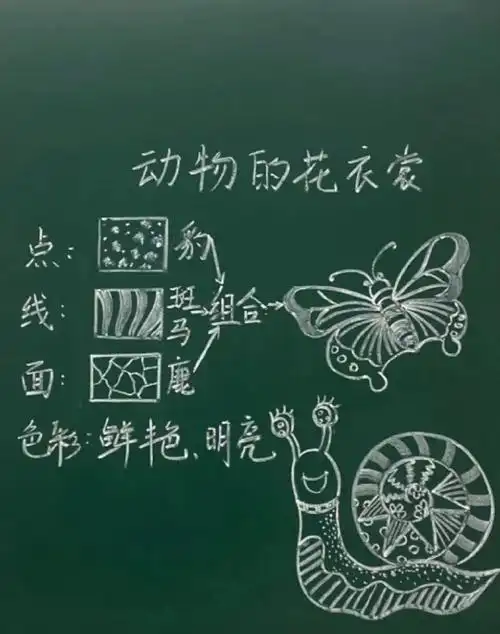 动物的花衣裳
点：豹
线：斑马 组合
面：鹿
色彩：鲜艳、明亮